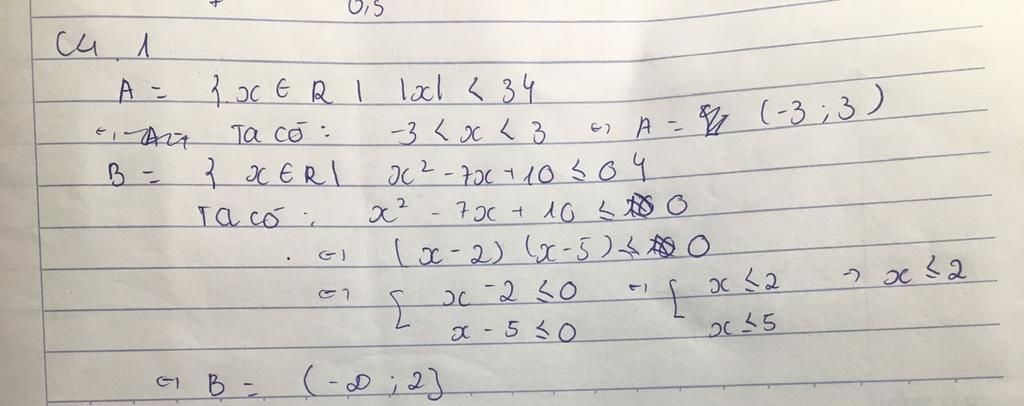 0,5
C4 1
A = { x ∈ R | |x| < 3 }
⇔ Ta có: -3 < x < 3 ⇔ A = (-3 ; 3)
B = { x ∈ R | x² - 7x + 10 ≤ 0 }
Ta có: x² - 7x + 10 ≤ 0
⇔ (x - 2) (x - 5) ≤ 0
⇔ [ x - 2 ≤ 0 ⇔ [ x ≤ 2 → x ≤ 2
x - 5 ≤ 0 x ≤ 5
⇔ B = (-∞ ; 2]